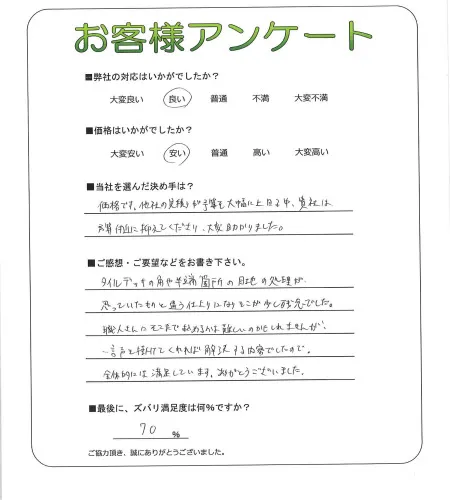 お客様アンケート
■弊社の対応はいかがでしたか？
大変良い 良い 普通 不満 大変不満
■価格はいかがでしたか？
大変安い 安い 普通 高い 大変高い
■当社を選んだ決め手は？
価格です。他社の見積りが予算を大幅に上回る中、貴社は
予算付近に抑えてくださり、大変助かりました。
■ご感想・ご要望などをお書き下さい。
タイルデッキの角や半端箇所の目地の処理が
思っていたものと違う仕上りになりそこが少し残念でした。
職人さんにそこまで求めるのは難しいのかもしれませんが、
一言声を掛けてくれれば解決する内容でしたので。
全体的には満足しています。ありがとうございました。
■最後に、ズバリ満足度は何%ですか？
70 %
ご協力頂き、誠にありがとうございました。